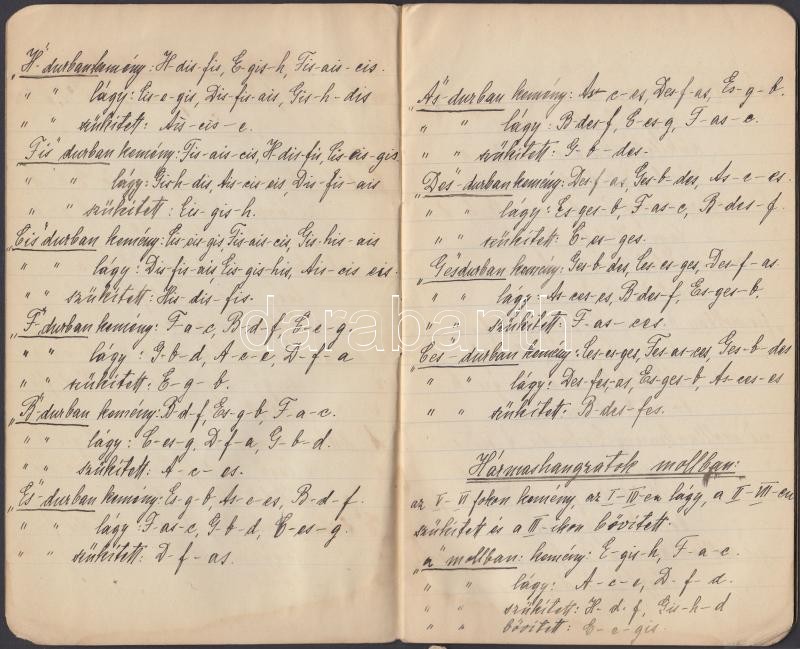 „H”-durban kemény: H-dis-fis, E-gis-h, Fis-ais-cis.
" " lágy: Cis-e-gis, Dis-fis-ais, Gis-h-dis
" " szűkített: Ais-cis-e.
„Fis” durban kemény: Fis-ais-cis, H-dis-fis, Cis-eis-gis
" " lágy: Gis-h-dis, Ais-cis-eis, Dis-fis-ais
" " szűkített: Eis-gis-h.
„Cis” durban kemény: Cis-eis-gis, Fis-ais-cis, Gis-his-ais
" " lágy: Dis-fis-ais, Eis-gis-his, Ais-cis-eis.
" " szűkített: His-dis-fis.
„F” durban kemény: F-a-c, B-d-f, C-e-g.
" " lágy: G-b-d, A-c-e, D-f-a
" " szűkített: E-g-b.
„B”-durban kemény: B-d-f, Es-g-b, F-a-c.
" " lágy: C-es-g, D-f-a, G-b-d.
" " szűkített: A-c-es.
„Es”-durban kemény: Es-g-b, As-c-es, B-d-f.
" " lágy: F-as-c, G-b-d, C-es-g.
" " szűkített: D-f-as.
„As”-durban kemény: As-c-es, Des-f-as, Es-g-b.
" " lágy: B-des-f, C-es-g, F-as-c.
" " szűkített: G-b-des.
„Des”-durban kemény: Des-f-as, Ges-b-des, As-c-es.
" " lágy: Es-ges-b, F-as-c, B-des-f.
" " szűkített: C-es-ges.
„Ges” durban kemény: Ges-b-des, Ces-es-ges, Des-f-as.
" " lágy: As-ces-es, B-des-f, Es-ges-b.
" " szűkített: F-as-ces.
„Ces”-durban kemény: Ces-es-ges, Fes-as-ces, Ges-b-des
" " lágy: Des-fes-as, Es-ges-b, As-ces-es
" " szűkített: B-des-fes.
Hármashangzatok mollban:
az V-VI fokon kemény, az I-IV-en lágy, a II-VII-en
szűkített és a III-ikon bővített.
„a” mollban: kemény: E-gis-h, F-a-c.
" " lágy: A-c-e, D-f-a.
" " szűkített: H-d-f, Gis-h-d
" " bővített: C-e-gis.
darabanth